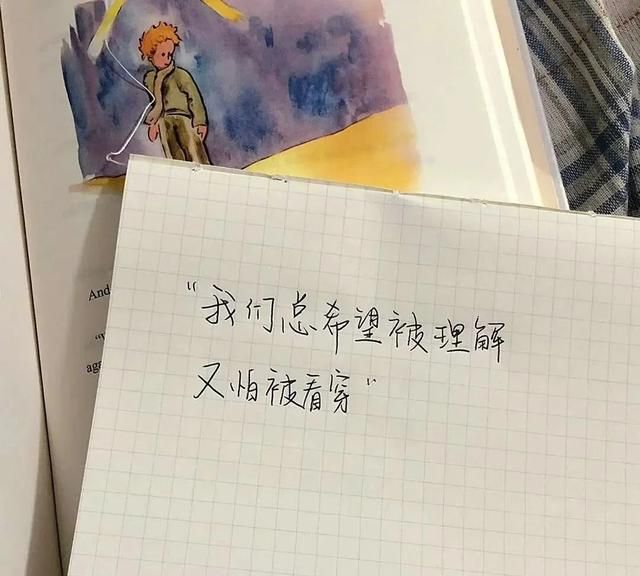 And
"
aga
"我们总希望被理解
又怕被看穿"